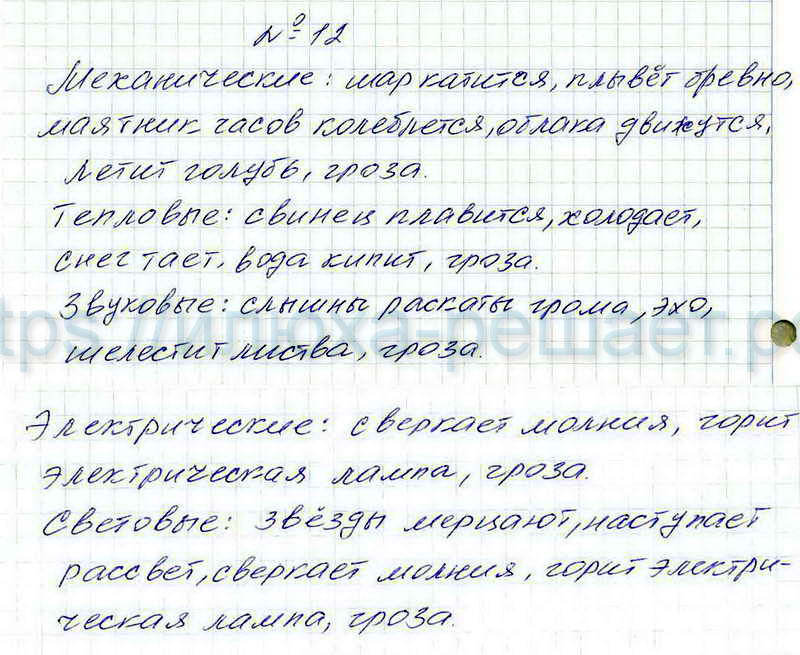 № 12
Механические: шар катится, плывёт бревно,
маятник часов колеблется, облака движутся,
летит голубь, гроза.
Тепловые: свинец плавится, холодает,
снег тает, вода кипит, гроза.
Звуковые: слышны раскаты грома, эхо,
tps://илюха-решает.р
шелестит листва, гроза.
Электрические: сверкает молния, горит
электрическая лампа, гроза.
Световые: звёзды мерцают, наступает
рассвет, сверкает молния, горит электри-
ческая лампа, гроза.